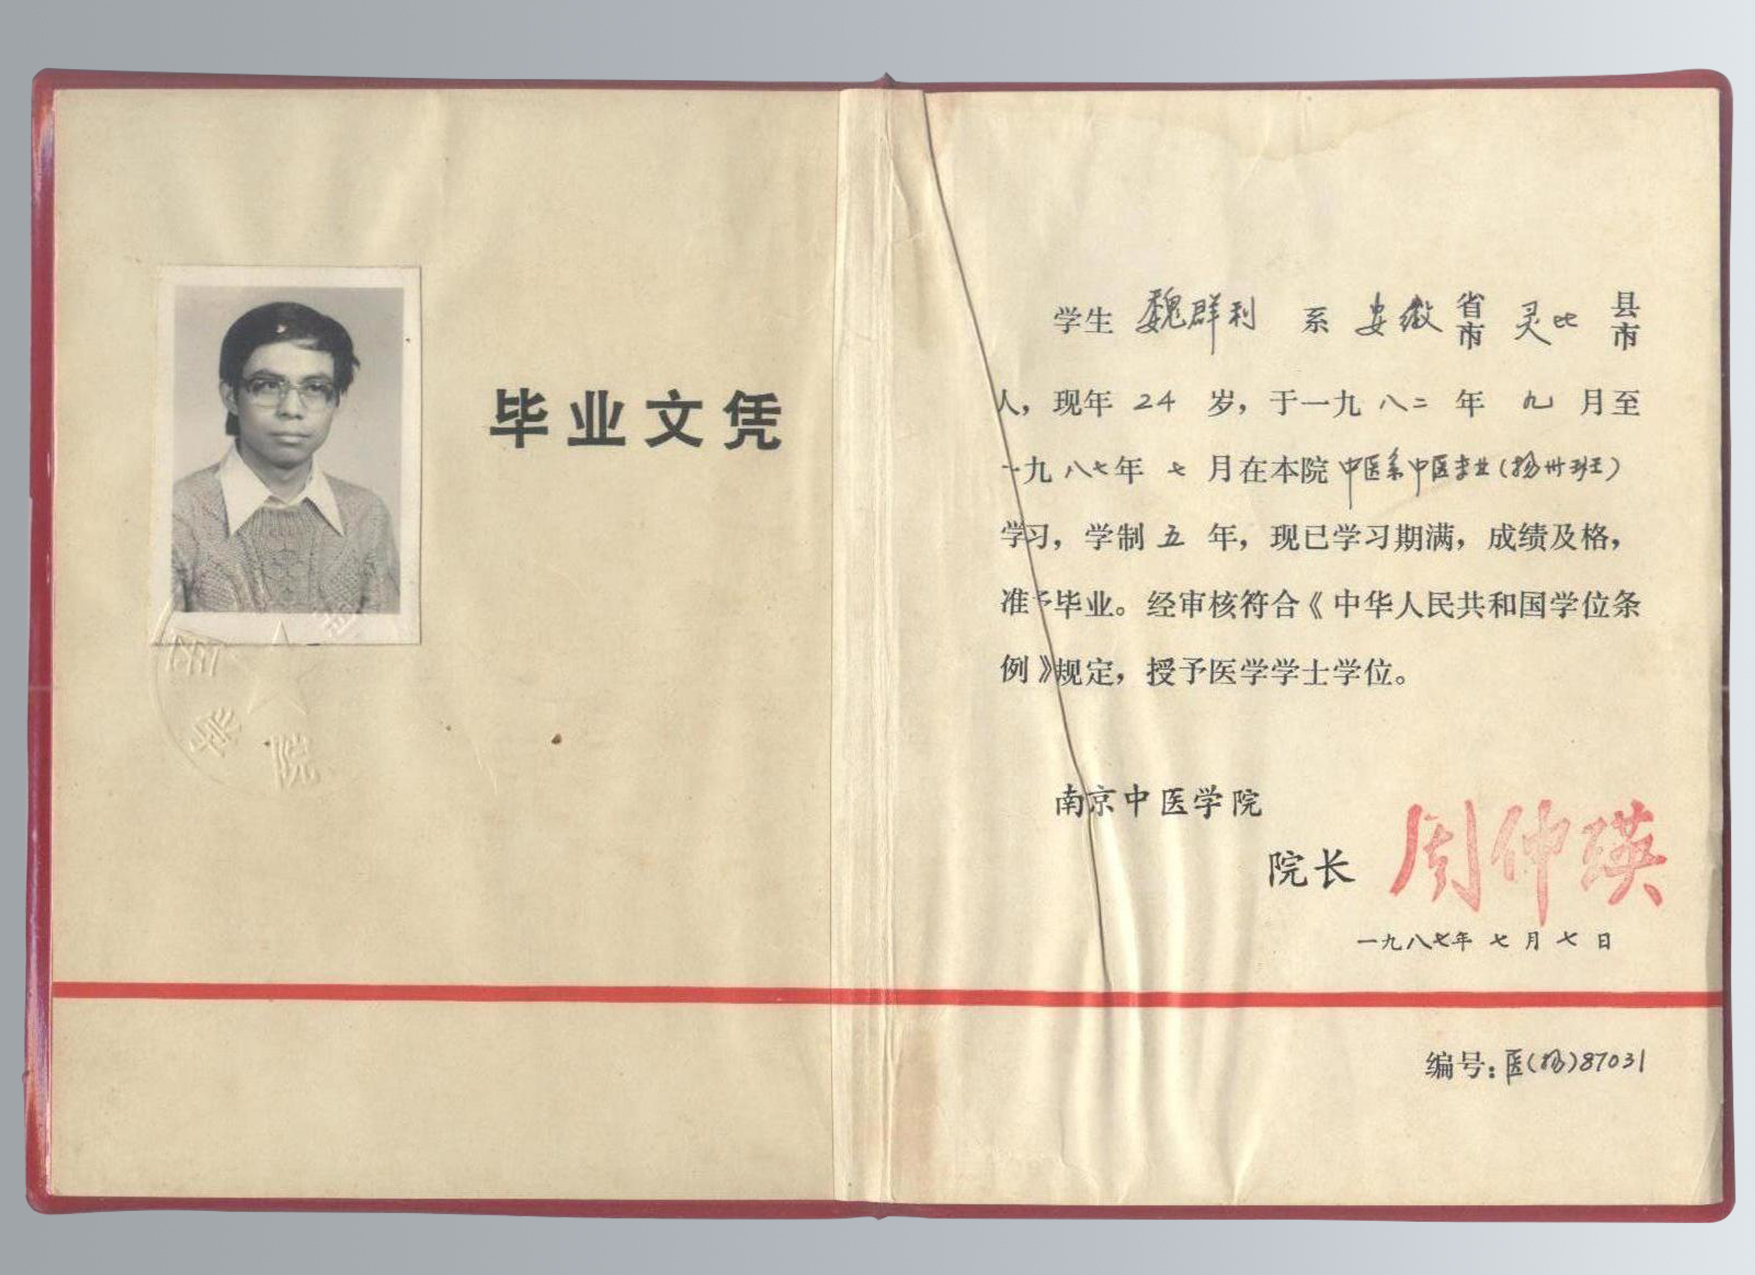 毕业文凭
学生 魏群利 系 安徽 省市 灵比 县市
人，现年 24 岁，于一九八二年 九 月至
一九八七年 七 月在本院 中医系中医专业（扬州班）
学习，学制 五 年，现已学习期满，成绩及格，
准予毕业。经审核符合《中华人民共和国学位条
例》规定，授予医学学士学位。
南京中医学院
院长 周仲瑛
一九八七年 七 月 七 日
编号：医（扬）87031